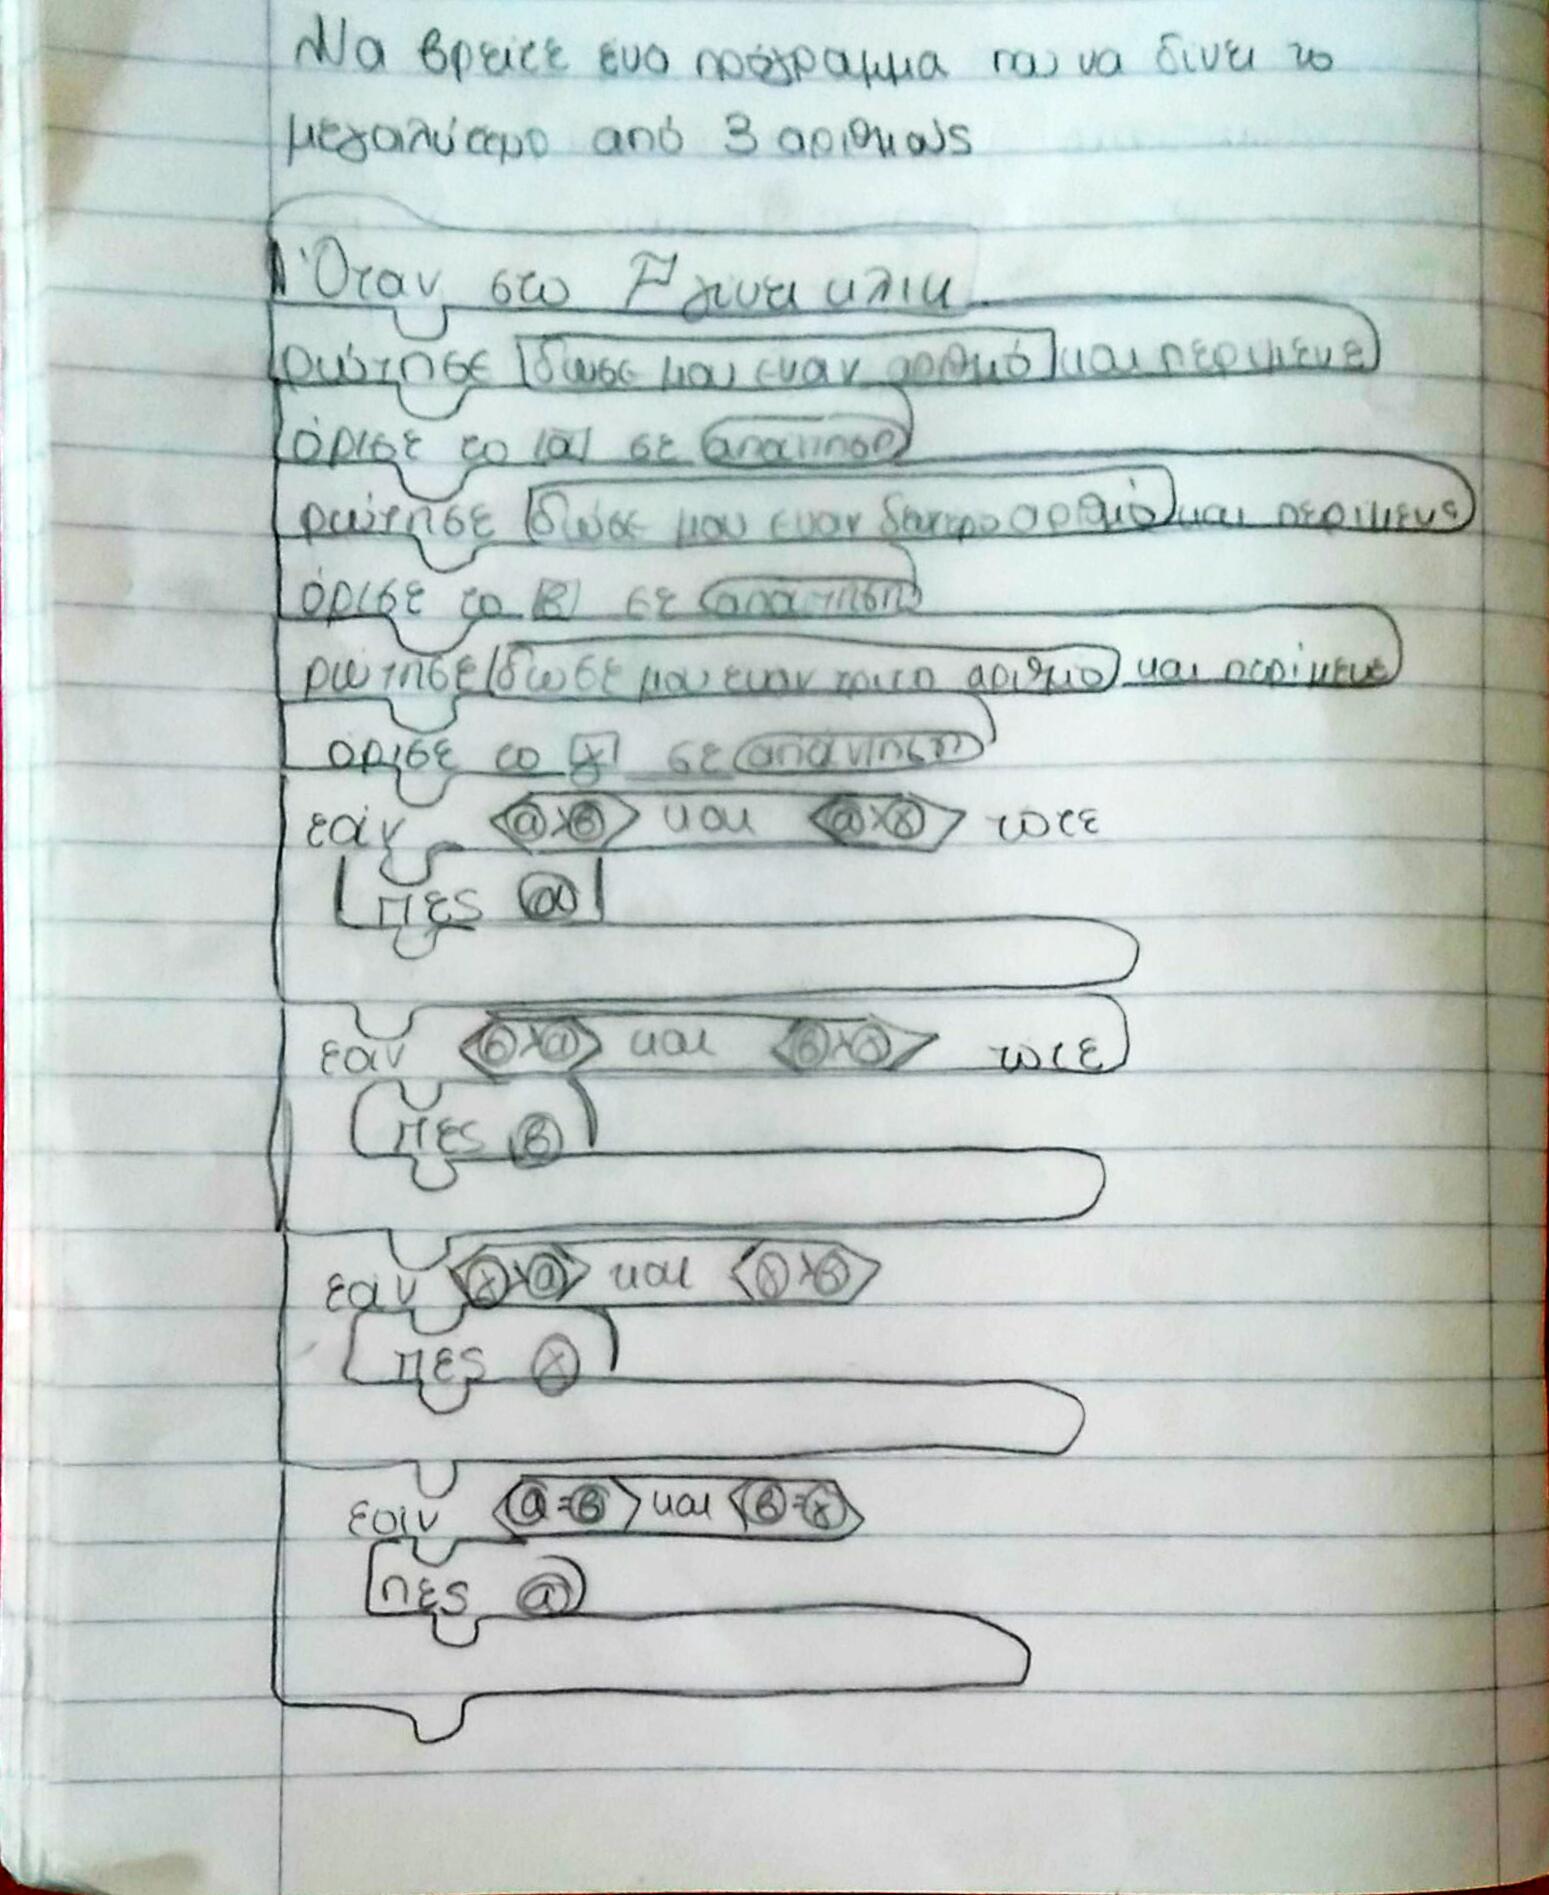 Να βρείτε ενα πρόγραμμα που να δίνει το
μεγαλύτερο από 3 αριθμούς
Όταν στο γίνει κλικ
ρώτησε δωσε μου εναν αριθμό και περιμενε
όρισε το α σε απάντηση
ρώτησε δώσε μου εναν δευτερο αριθμό και περιμενε
όρισε το β σε απάντηση
ρώτησε δωσε μου εναν τριτο αριθμο και περίμενε
ορισε το γ σε απάντηση
εάν α>β και α>γ τότε
πες α
εαν β>α και β>γ τότε
πες β
εάν γ>α και γ>β
πες γ
εάν α=β και β=γ
πες α